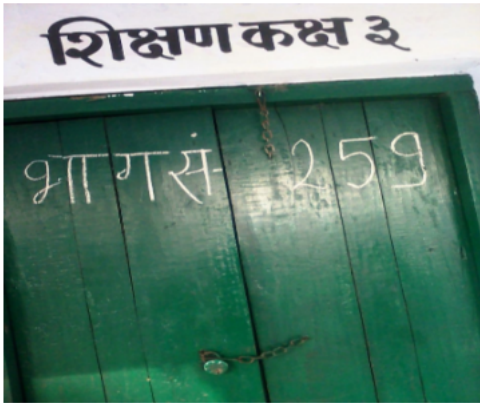 शिक्षण कक्ष ३
भाग सं- 259